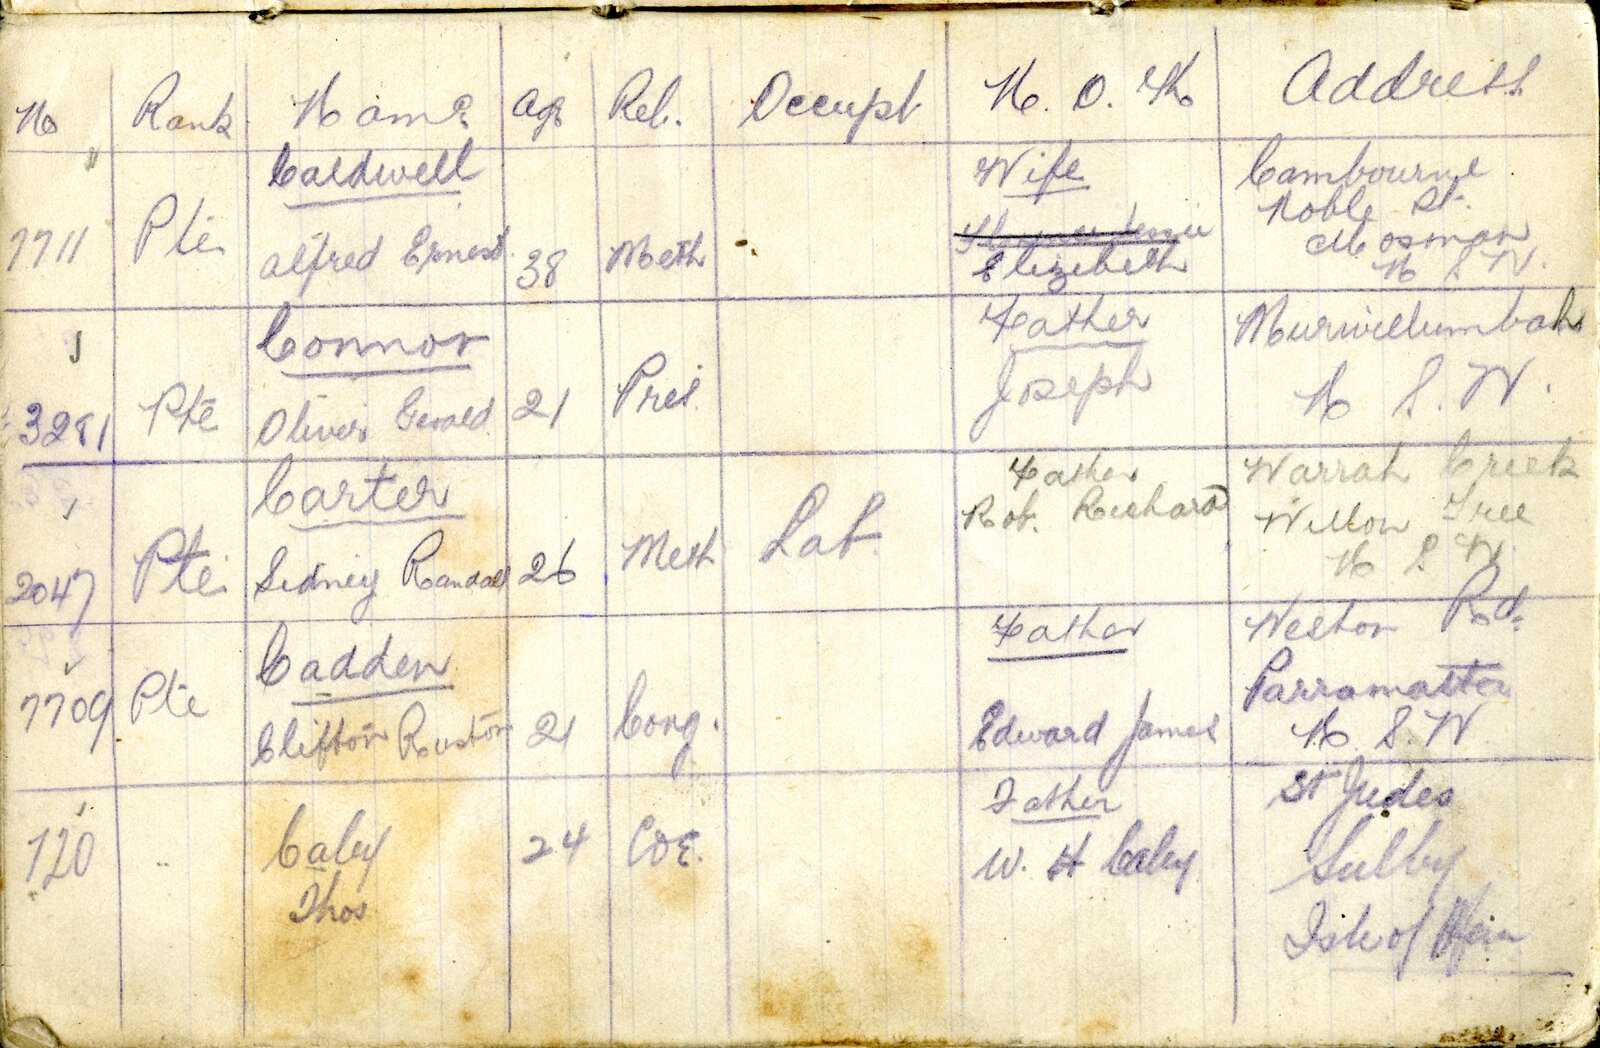 No Rank Name Age Rel. Occupt N. O. K Address
" Caldwell Wife Cambourne
Noble St.
7711 Pte Alfred Ernest 38 Meth Elizebeth Mosman
N S W.
Connor Father Murwillumbah
3281 Pte Oliver Gerald 21 Pres. Joseph N S. W.
Carter Father Warrah Creek
Rob. Richard Willow Tree
2047 Pte Sidney Randall 26 Meth Lab. N S W.
Cadden Father Weston Rd.
7709 Pte Parramatta
Clifton Ruston 21 Cong. Edward James N. S. W.
Father St Judes
720 " Caley 24 COE. W. H Caley Sulby
Thos Isle of Man